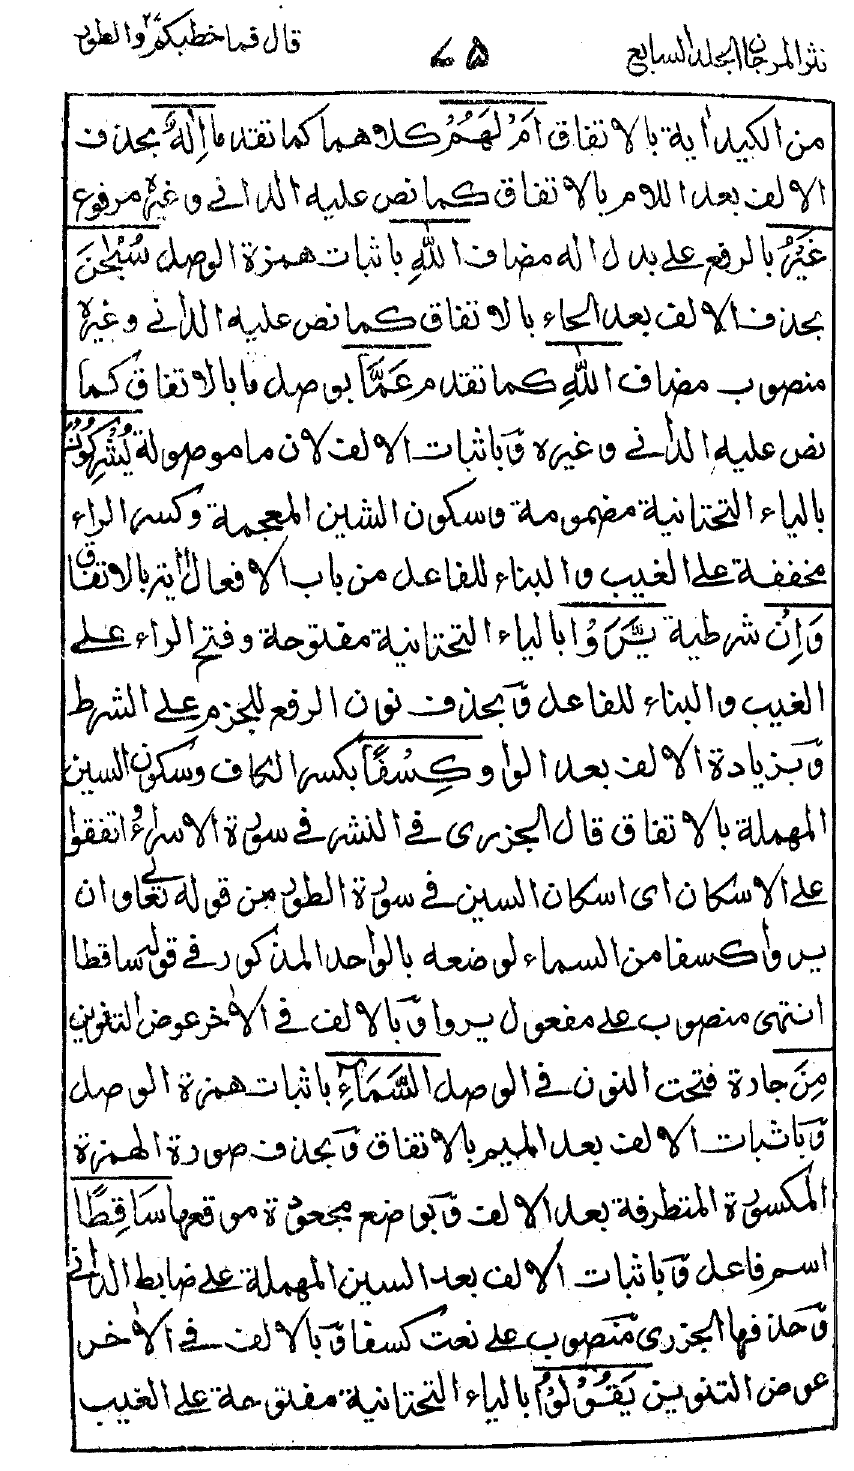 نثر المرجان الجلد السابع
٦٠٥
قال فما خطبكم ٢٧ والطور
من الكيد اية بالاتفاق اَمْ لَهُمْ كلاهما كما تقدما اِلٰهٌ بحذف
الالف بعد اللام بالاتفاق كما نص عليه الدانى وغيره مرفوع
غَيْرُ بالرفع على بدل اله مضاف اللّٰهِ باثبات همزة الوصل سُبْحٰنَ
بحذف الالف بعد الحاء بالاتفاق كما نص عليه الدانى وغيره
منصوب مضاف اللّٰهِ كما تقدم عَمَّا بوصل ما بالاتفاق كما
نص عليه الدانى وغيره وباثبات الالف لان ما موصولة يُشْرِكُوْنَ
بالياء التحتانية مضمومة وسكون الشين المعجمة وكسر الراء
مخففة على الغيب والبناء للفاعل من باب الافعال اية بالاتفاق
وَاِنْ شرطية يَّرَوْا بالياء التحتانية مفتوحة وفتح الراء على
الغيب والبناء للفاعل وبحذف نون الرفع للجزم على الشرط
وبزيادة الالف بعد الواو كِسْفًا بكسر الكاف وسكون السين
المهملة بالاتفاق قال الجزرى فى النشر فى سورة الاسراء واتفقوا
على الاسكان اى اسكان السين فى سورة الطور من قوله تعالى وان
يروا كسفا من السماء لوضعه بالواحد المذكور فى قوله ساقطا
انتهى منصوب على مفعول يروا وبالالف فى الاٰخر عوض التنوين
مِنَ جادة فتحت النون فى الوصل السَّمَآءِ باثبات همزة الوصل
وباثبات الالف بعد الميم بالاتفاق وبحذف صورة الهمزة
المكسورة المتطرفة بعد الالف وبوضع مجعودة موقعها سَاقِطًا
اسم فاعل وباثبات الالف بعد السين المهملة على ضابط الدانى
وحذفها الجزرى منصوب على نعت كسفا وبالالف فى الاٰخر
عوض التنوين يَقُوْلُوْا بالياء التحتانية مفتوحة على الغيب